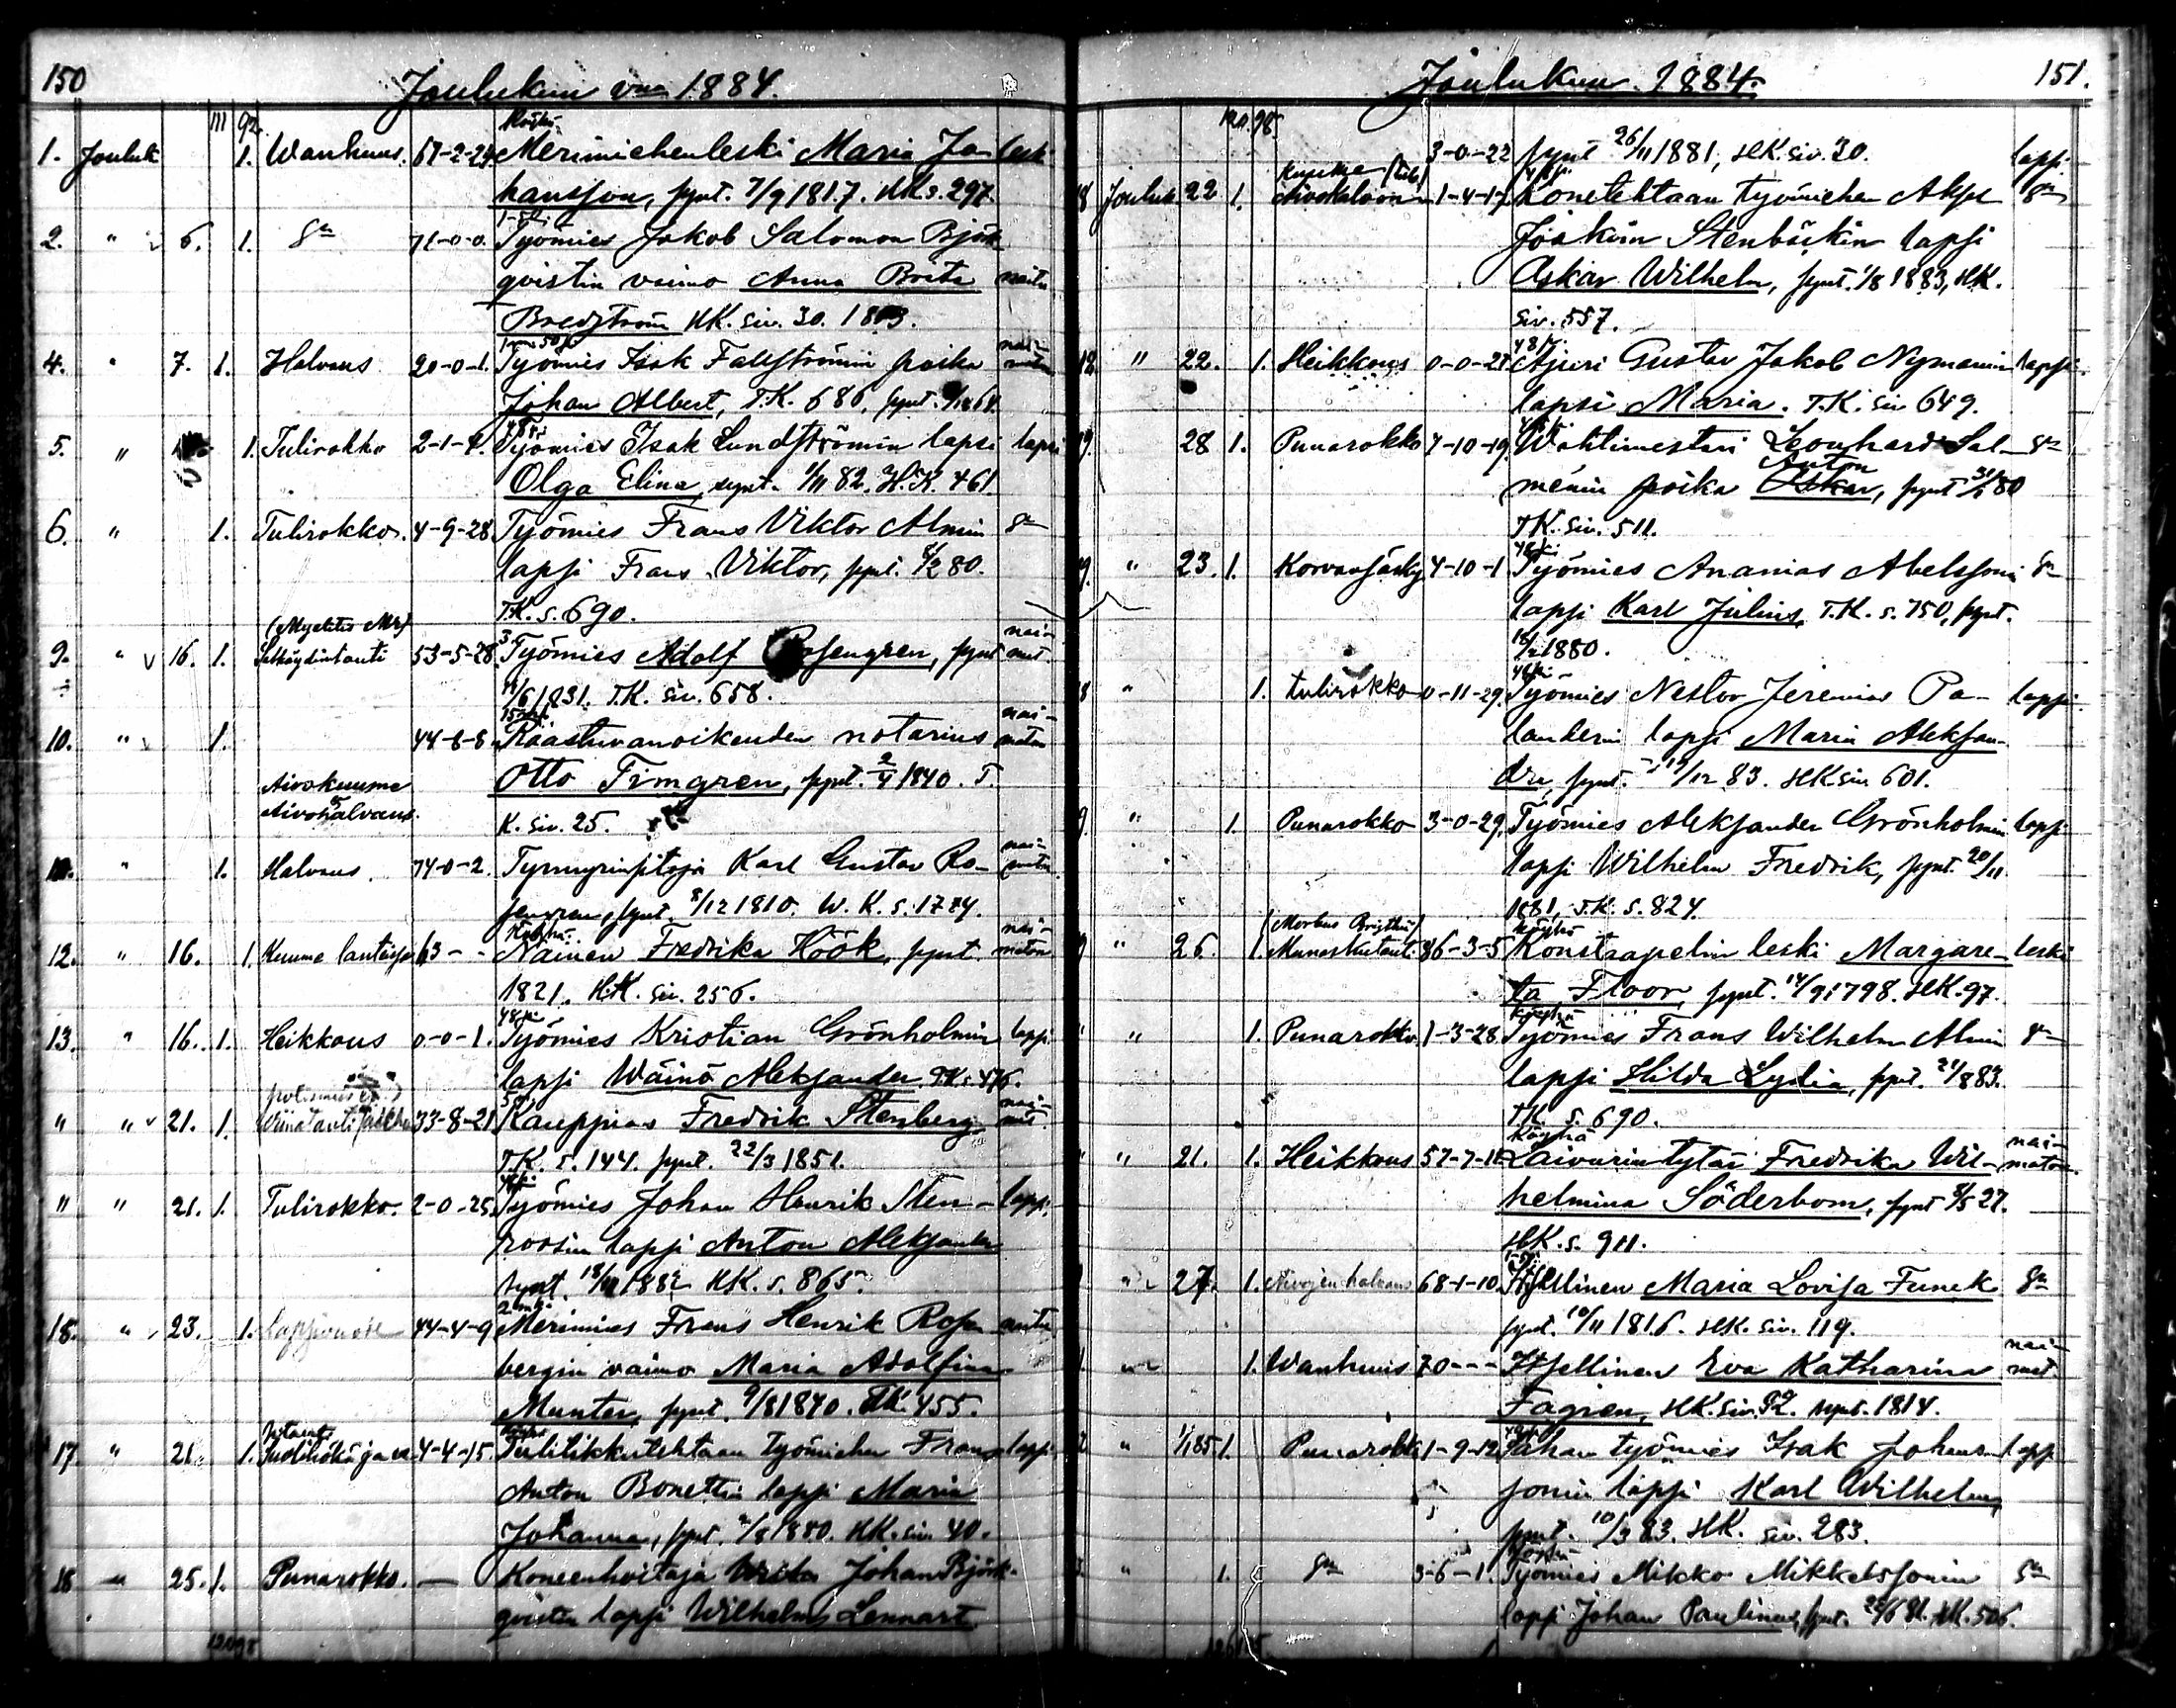 150
Joulukuu vna 1884.
111 92.
1. Jouluk 1. Wanhuus. 67-2-24 Merimiehenleski Maria Jo- leski
hansson, synt. 7/9 1817. HK s. 297.
2. " 6. 1. Sn 71-0-0. Työmies Jakob Salomon Björk
qvistin vaimo Anna Brita naitu
Bredström HK. siv. 30. 1813.
4. " 7. 1. Halvaus 20-0-1. Työmies Isak Fallströmin poika nai-
Johan Albert, T.K. 686, synt. 64. maton
5. " 1. Tulirokko 2-1-4. Työmies Isak Lundströmin lapsi lapsi
Olga Elina, synt. 1/11 82. H.K. 461.
6. " 1. Tulirokko. 4-9-28 Työmies Frans Viktor Almin Sn
lapsi Frans Viktor, synt. 8/2 80.
T.K. s. 690.
(Myelitis Mr)
9. " 16. 1. Selkäydintauti 53-5-28 Työmies Adolf Rosengren, synt nai-
/6 1831. T.K. siv. 658. mut.
10. " 1. 44-8-8 Raastuvanoikeuden notarius nai-
Otto Timgren, synt. 2/4 1840. T. maton
Aivokuume
Aivohalvaus. K. siv. 25.
" 1. Halvaus. 74-0-2. Karl Gustav Ro- nai-
sengren, synt. 8/12 1810. W. K. s. 1774.
12. " 16. 1. Kuume 63 - - Nainen Fredrika Höök, synt. nai-
1821. H.K. siv. 256. maton
13. " 16. 1. Heikkous 0-0-1. Työmies Kristian Grönholmin lapsi
lapsi Wäinö Aleksander T.K. s. 476.
" " 21. 1. 33-8-21 Kauppias Fredrik Stenberg nai-
T.K. s. 144. synt. 22/3 1851. mt.
" " 21. 1. Tulirokko. 2-0-25. Työmies Johan Henrik Sten- lapsi
roosin lapsi Anton Aleksander
synt. 18/11 1882 HK. s. 865.
" 23. 1. 44-4-9 Merimies Frans Henrik Rosen- naitu
bergin vaimo Maria Adolfina
Munter, synt. 9/8 1840. HK. 455.
17 " 21. 1. 4-4-15. Tulitikkutehtaan työmiehen Frans lapsi
Anton Bonettin lapsi Maria
Johanna, synt. 2/8 1880. HK. siv. 40.
18 " 25. 1. Punarokko. — Koneenhoitaja Johan Björk-
qvistin lapsi Wilhelm Lennart
120 98
Joulukuu 1884.
151.
120. 98.
3-0-22 synt 26/11 1881, HK. siv. 30. lapsi
18 Jouluk 22 1. 1-4-17 Konetehtaan työmiehen Aksel Sn
Joakim Stenbäckin lapsi
Oskar Wilhelm, synt. 1/8 1883, HK.
siv. 557.
12 " 22. 1. Heikkous 0-0-21 Ajuri Gustav Jakob Nymanin lapsi
lapsi Maria. T.K. siv 649.
19. 28 1. Punarokko 4-10-19. Wahtimestari Leonhard Sal- Sn
Anton
ménin poika Oskar, synt 31/1 80
TK. siv. 511.
19. " 23. 1. 4-10-1 Työmies Ananias Abelssonin Sn
lapsi Karl Julius, T.K. s. 750, synt.
18/2 1880.
18 " 1. tulirokko 0-11-29. Työmies Nestor Jeremias Pa- lapsi.
landerin lapsi Maria Aleksan-
dra, synt. 19/12 83. HK siv 601.
9. " 1. Punarokko 3-0-29. Työmies Aleksander Grönholmin lapsi
lapsi Wilhelm Fredrik, synt. 20/11
1881, T.K. s. 824.
(Morbus Brigthii)
" 26. 1. Munuaistauti 86-3-5 Konstaapelin leski Margare- leski
ta Floor, synt. 14/9 1798. HK. 97.
" 1. Punarokko. 1-3-28. Työmies Frans Wilhelm Almin Sn
lapsi Hilda Lydia, synt. 21/8 83.
T.K. s. 690.
" 21. 1. Heikkous 57-7- Laivurin tytär Fredrika Wil- nai-
helmina Söderbom, synt 8/5 27. maton.
HK. s. 911.
" 27. 1. Aivojen halvaus 68-1-10. Itsellinen Maria Lovisa Funck Sn
synt. 10/11 1816. HK. siv. 119.
" 1. Wanhuus 70 - - - Itsellinen Eva Katharina nai-
Fagren, HK. siv. 92. synt. 1814. mt
" 1/1 85 1. Punarokko 1-9-12 Sahan työmies Isak Johans- lapsi
sonin lapsi Karl Wilhelm,
synt. 10/3 83. HK. siv. 283.
" 1. Sn 3-6-1. Työmies Mikko Mikkelssonin Sn
lapsi Johan Paulinus, synt. 22/6 81. HK. 506.